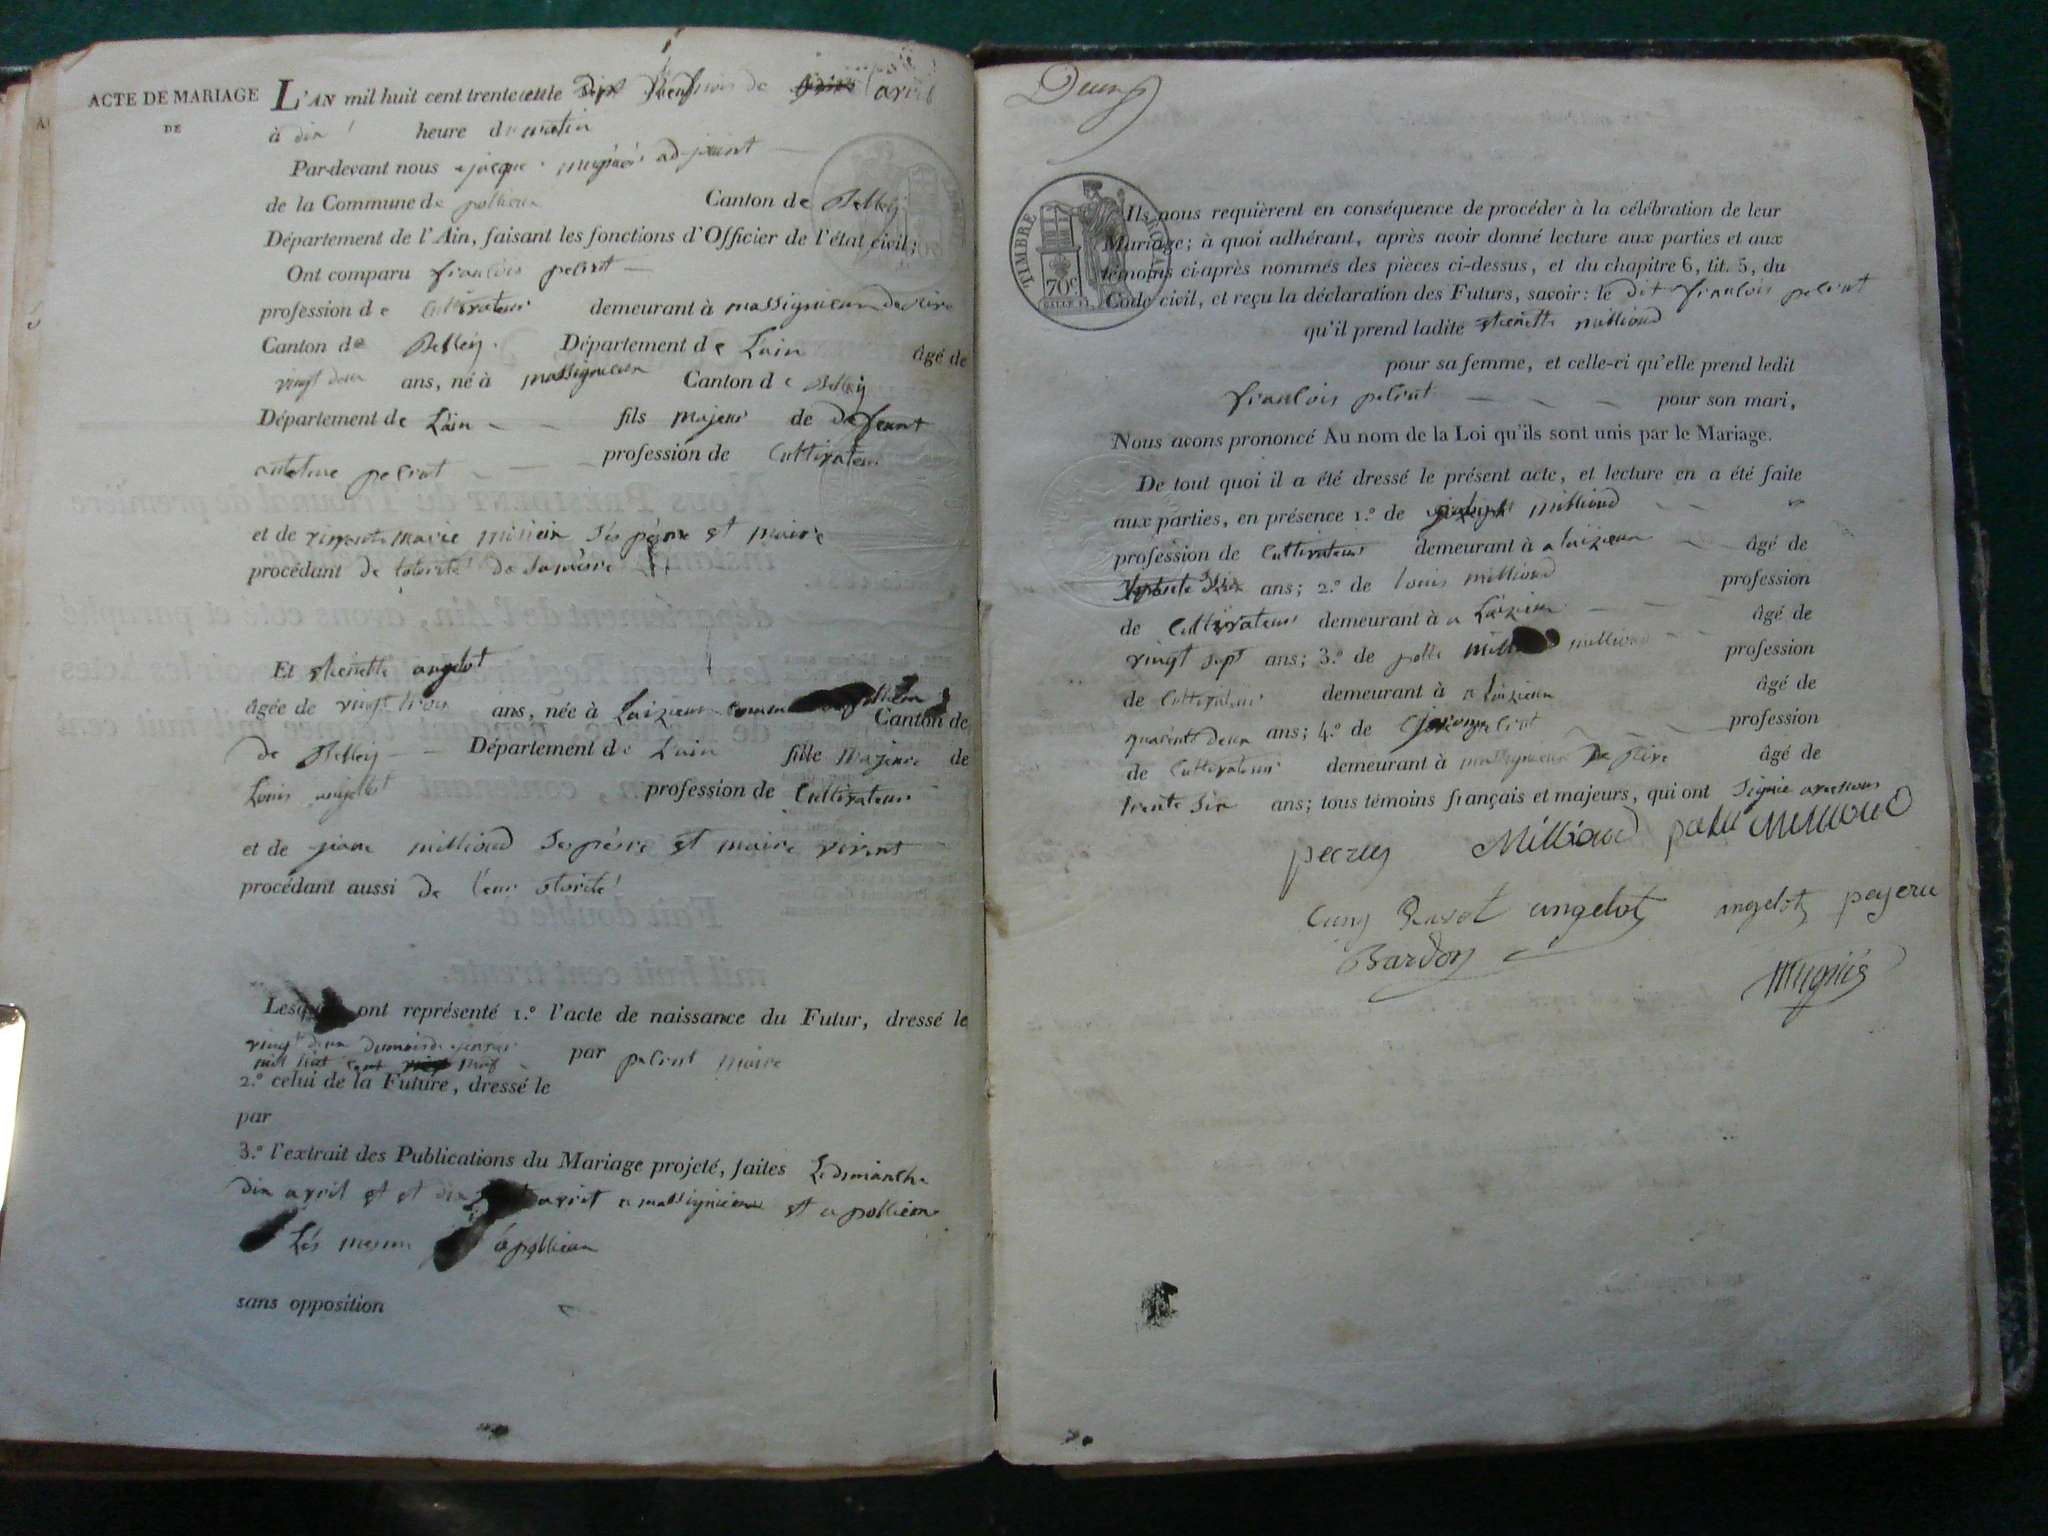 ACTE DE MARIAGE
DE
L'AN mil huit cent trente avril
à dix heure du matin
Par-devant nous jacque mugniés adjount
de la Commune de pollieux Canton de Belley
Département de l'Ain, faisant les fonctions d'Officier de l'état civil;
Ont comparu francois pelrat
profession de Cultivateur demeurant à massignieux De rive
Canton de Belley Département de Lain âgé de
vingt deux ans, né à massignieux Canton de Belley
Département de Lain fils majeur de defeunt
antoine pelrat profession de Cultivateur
et de vivante marie ses père et maire
procédant de lotorité de sa mère
Et etienette angelot
âgée de vingt trois ans, née à Laizieux Canton de
de Belley Département de Lain fille majeure de
Louis angelot profession de Cultivateur
et de jiane millioud Ses pérre et maire vivent
procédant aussi de leur otorité
Lesquels ont représenté 1.º l'acte de naissance du Futur, dressé le
vingt deux dumois de
mil huit cent neuf par pelrat maire
2.º celui de la Future, dressé le
par
3.º l'extrait des Publications du Mariage projeté, faites Ledimanche
dix avril et et dix avril a massignieux et a pollieux
Lés mesme a pollieux
sans opposition
Deux
TIMBRE ROYAL
70c
Ils nous requièrent en conséquence de procéder à la célébration de leur
Mariage; à quoi adhérant, après avoir donné lecture aux parties et aux
témoins ci-après nommés des pièces ci-dessus, et du chapitre 6, tit. 5, du
Code civil, et reçu la déclaration des Futurs, savoir: le dit francois pelrat
qu'il prend ladite etienette millioud
pour sa femme, et celle-ci qu'elle prend ledit
francois pelrat pour son mari,
Nous avons prononcé Au nom de la Loi qu'ils sont unis par le Mariage.
De tout quoi il a été dressé le présent acte, et lecture en a été faite
aux parties, en présence 1.º de millioud
profession de Cultivateur demeurant à a laizieux âgé de
ans; 2.º de louis millioud profession
de Cultivateur demeurant à a Laizieux âgé de
vingt sept ans; 3.º de millioud profession
de Cultivateur demeurant à a Laizieux âgé de
quarente deux ans; 4.º de pelrat profession
de Cultivateur demeurant à massignieux De rive âgé de
trente six ans; tous témoins français et majeurs, qui ont Signié avec nous
Millioud Millioud
angelot angelot
Bardon
Mugniés